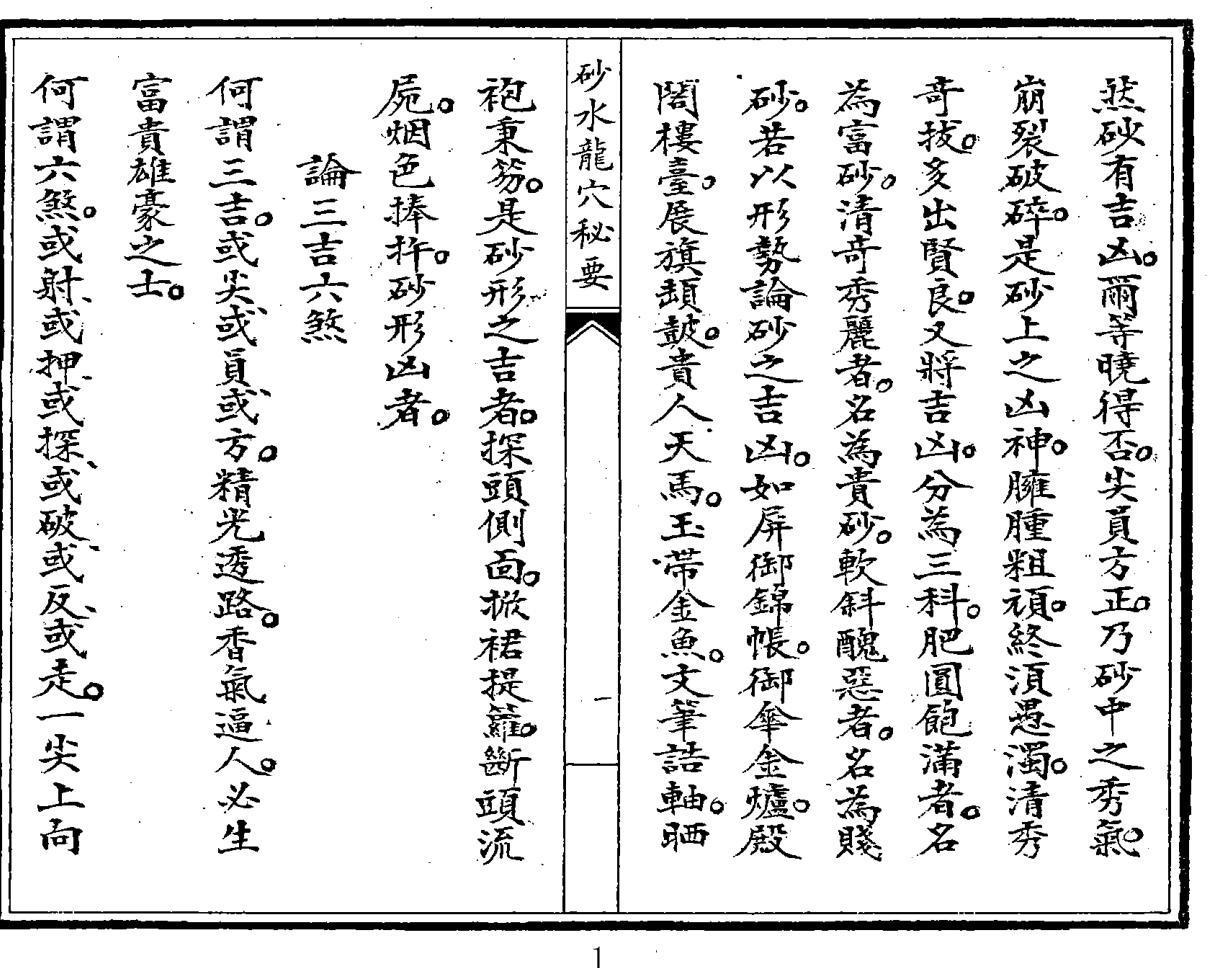 然砂有吉凶。爾等曉得否。尖員方正。乃砂中之秀氣。
崩裂破碎。是砂上之凶神。臃腫粗頑。終須愚濁。清秀
奇拔。多出賢良。又將吉凶。分為三科。肥圓飽滿者。名
為富砂。清奇秀麗者。名為貴砂。軟斜醜惡者。名為賤
砂。若以形勢論砂之吉凶。如屏御錦帳。御傘金爐。殿
閣樓臺。展旗頓皷。貴人天馬。玉帶金魚。文筆誥軸。晒
砂水龍穴秘要
一
袍秉笏。是砂形之吉者。探頭側面。掀裙提籮。斷頭流
屍。烟色捧杵。砂形凶者。
論三吉六煞
何謂三吉。或尖、或員、或方。精光透路。香氣逼人。必生
富貴雄豪之士。
何謂六煞。或射、或押、或探、或破、或反、或走。一尖上向
1